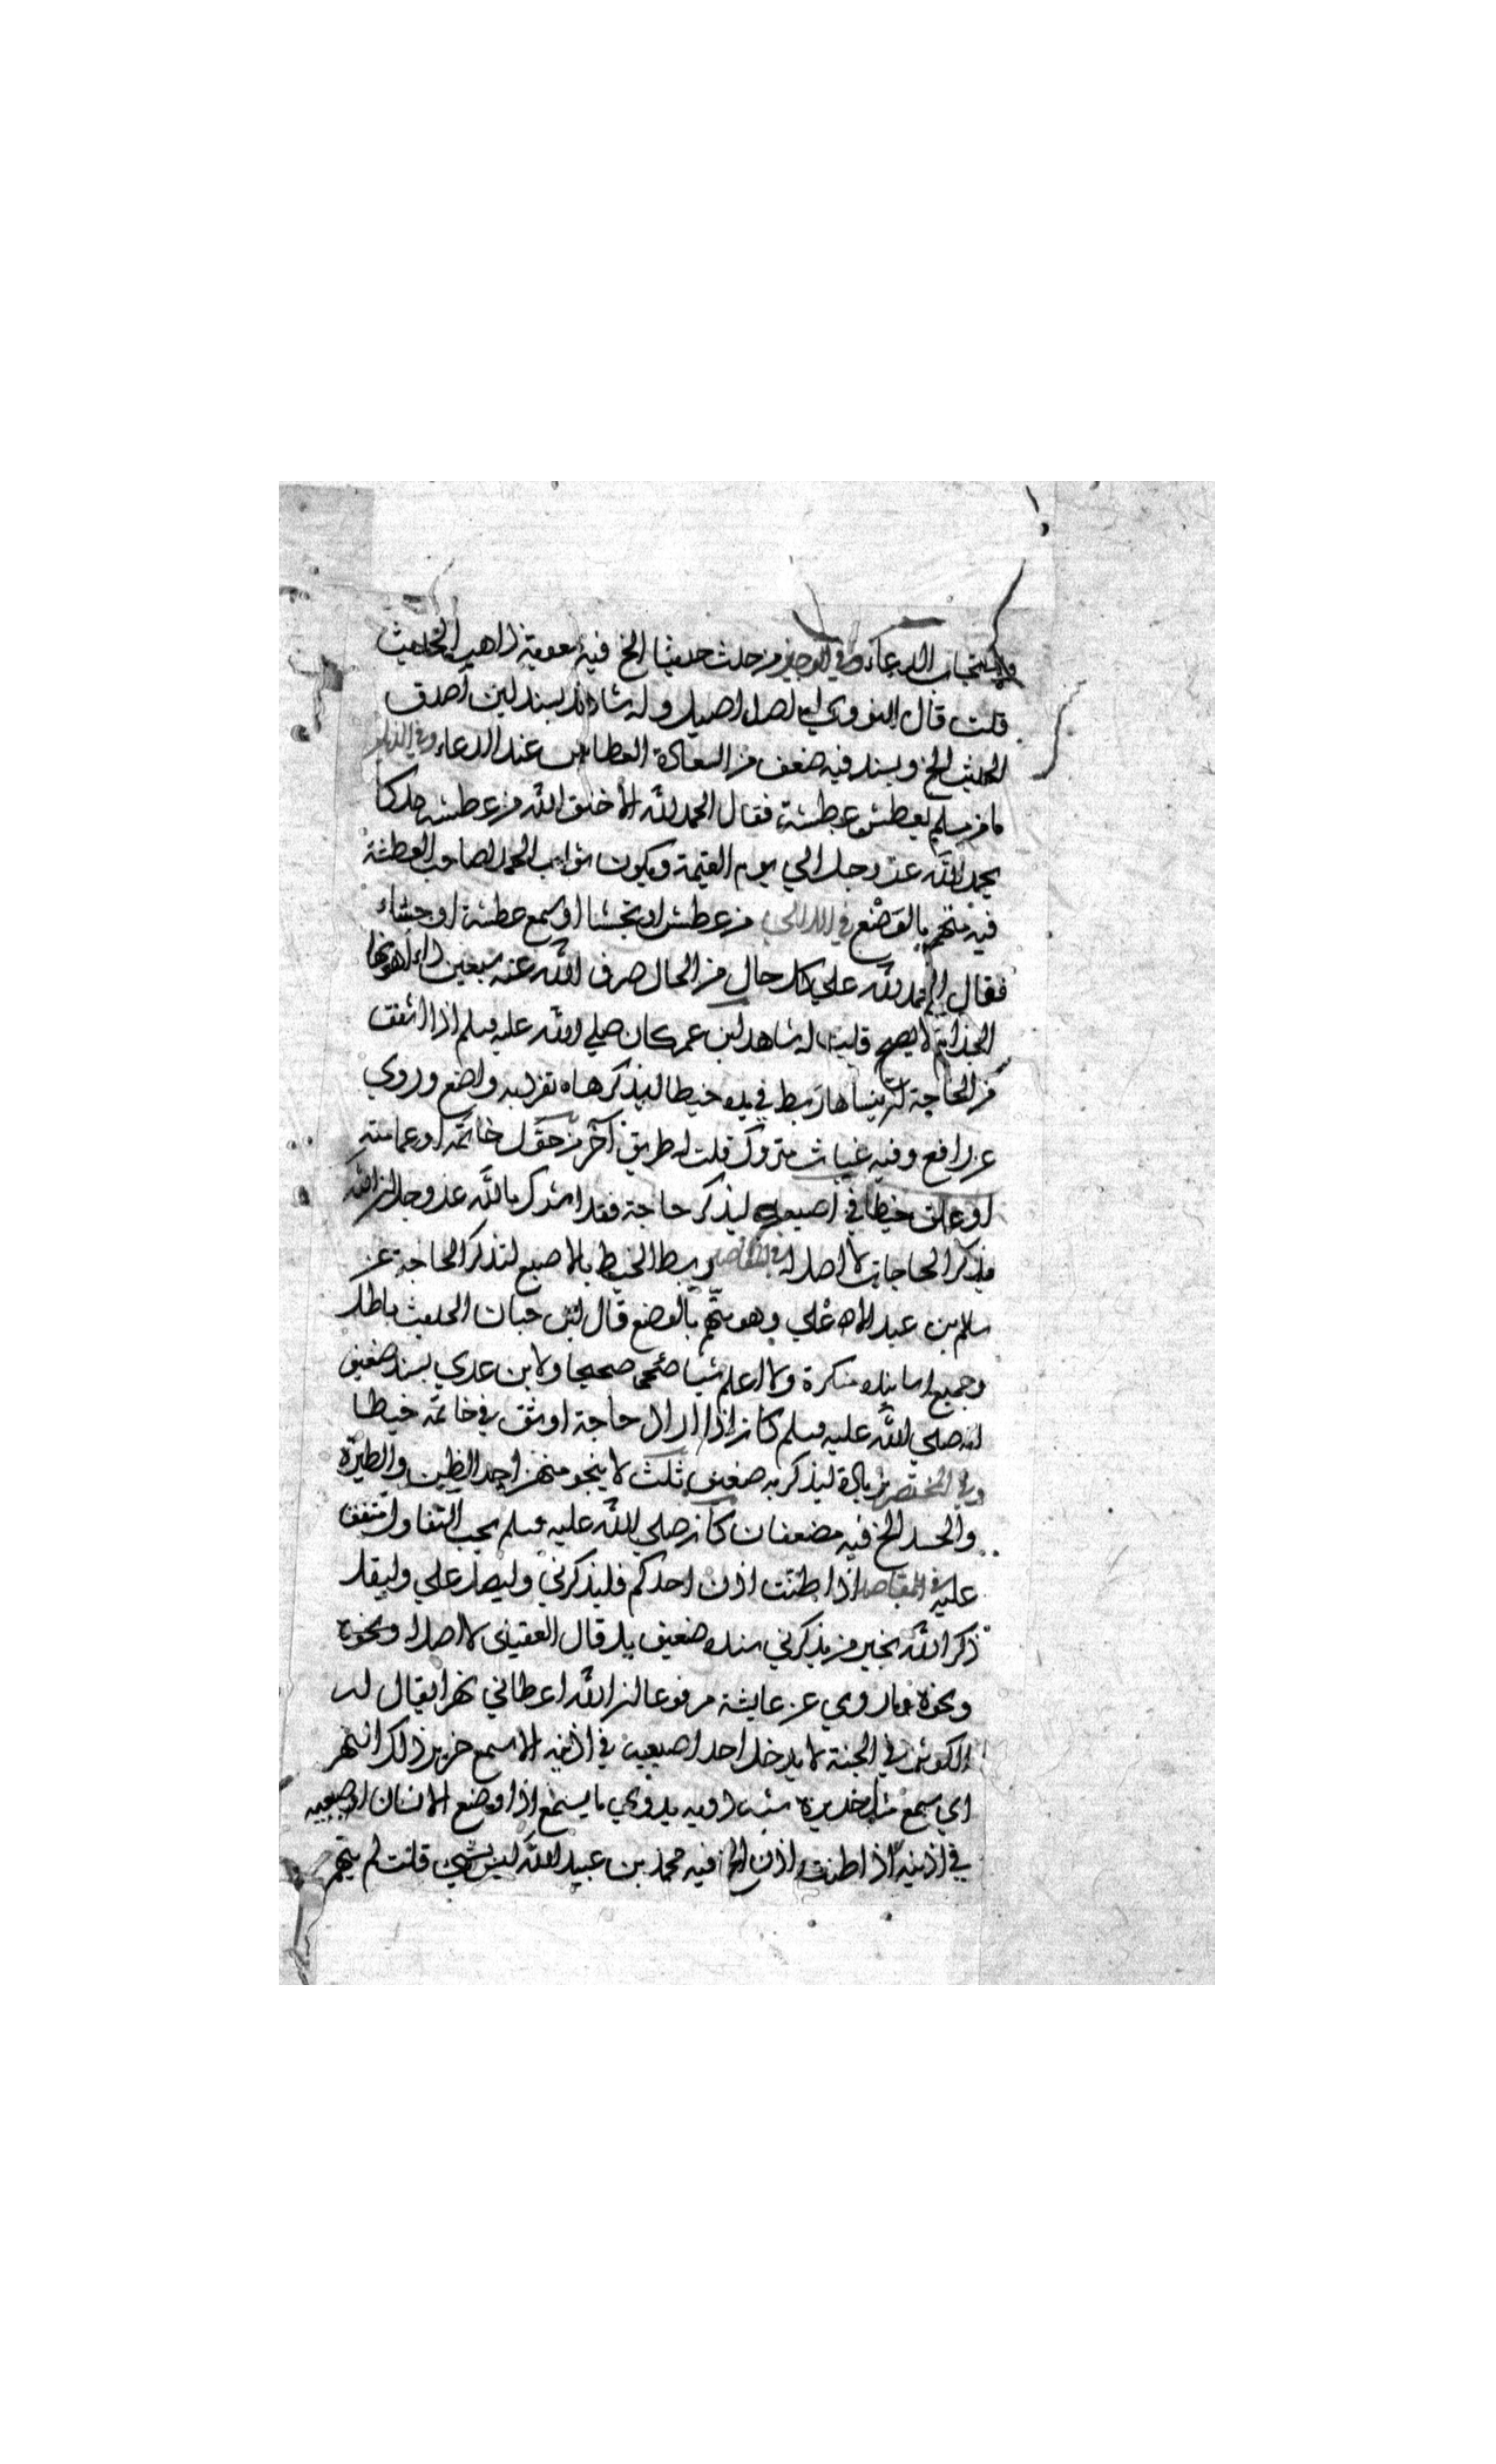 واستجاب الدعاء وفي الوجيز من حدث حديثا الخ فيه معوية ذاهب الحديث
قلت قال النووي له اصل اصيل وله شاهد بسند لين اصدق
الحديث الخ وبسند فيه ضعف من السعادة العطاس عند الدعاء وفي الذيل
ما من مسلم يعطش عطشة فقال الحمد لله الا خلق الله من عطشته ملكا
يحمد الله عز وجل الي يوم القيمة ويكون ثواب الحمد لصاحب العطشة
فيه متهم بالوضع في اللالي من عطش او تجشا او سمع عطشة او جشاء
فقال الحمد لله علي كل حال من الحال صرف الله عنه سبعين داء اهونها
الجذام لا يصح قلت له شاهد ابن عمر كان صلي الله عليه وسلم اذا اشفق
من الحاجة ان ينساها ربط في يده خيطا ليذكرها ه تفرد به واضع وروي
عن رافع وفيه غياث متروك قلت له طريق آخر من حول خاتمه او عمامته
او علق خيطا في اصبعه ليذكر حاجة فقد اشرك بالله عز وجل ان الله
يذكر الحاجات لا اصل له في المقاصد ربط الخيط بالاصبع لتذكر الحاجة عن
سالم بن عبد الاعلي وهو متهم بالوضع قال ابن حبان الحديث باطل
وجميع اسانيده منكرة ولا اعلم شيا صحيحا ولابن عدي بسند ضعيف
انه صلي الله عليه وسلم كان اذا اراد حاجة اوثق في خاتمه خيطا
وفي المختصر زيادة ليذكر به ضعيف ثلث لا ينجو منهن احد الظن والطيرة
والحسد الخ فيه مضعفان كان صلي الله عليه وسلم يحب التفاول متفق
عليه في المقاصد اذا طنت اذن احدكم فليذكرني وليصل علي وليقل
ذكر الله بخير من يذكرني سنده ضعيف بل قال العقيلي لا اصل له ونحوه
ونحوه ما روي عن عايشة مرفوعا ان الله اعطاني نهرا يقال له
الكوثر في الجنة لا يدخل احد اصبعيه في اذنيه الا سمع خرير ذلك النهر
اي سمع مثل خريره شبه دويه بدوي ما يسمع اذا وضع الانسان اصبعيه
في اذنيه اذا طنت اذن الخ فيه محمد بن عبيد الله ليس بشي قلت لم يتهم